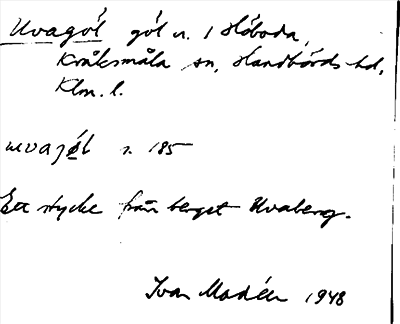 Uvagöl göl n. / Flöboda,
Kråksmåla sn, Handbörds hd,
Klm. l.
uvajø̀l s. 185
Ett stycke från berget Uvaberg.
Ivar Modéer 1948